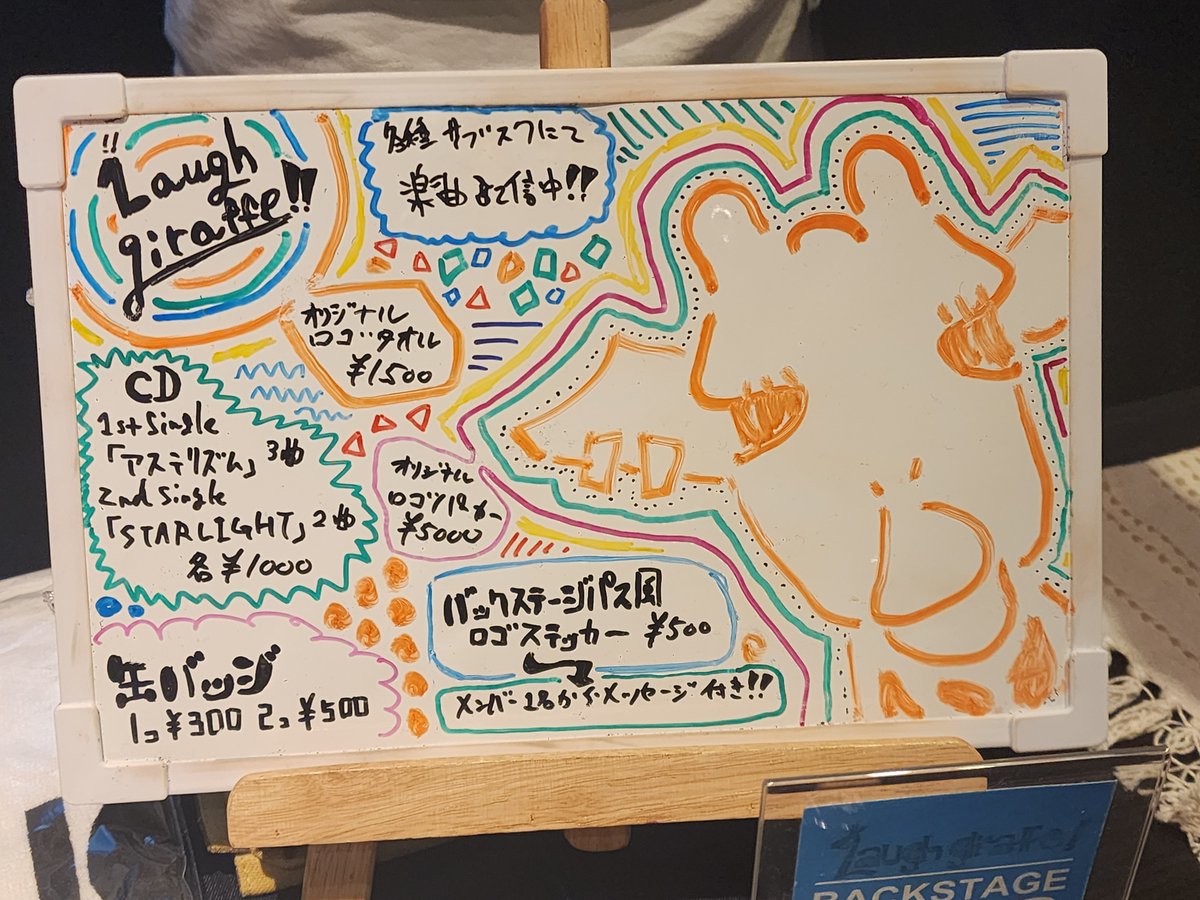 Laugh
giraffe!!
各種サブスクにて
楽曲配信中!!
オリジナル
ロゴタオル
¥1500
CD
1st Single
「アステリズム」3曲
2nd Single
「STARLIGHT」2曲
各¥1000
オリジナル
ロゴパーカー
¥5000
バックステージパス風
ロゴステッカー ¥500
メンバー1名からメッセージ付き!!
缶バッジ
1コ¥300 2コ¥500
Laugh giraffe!
BACKSTAGE